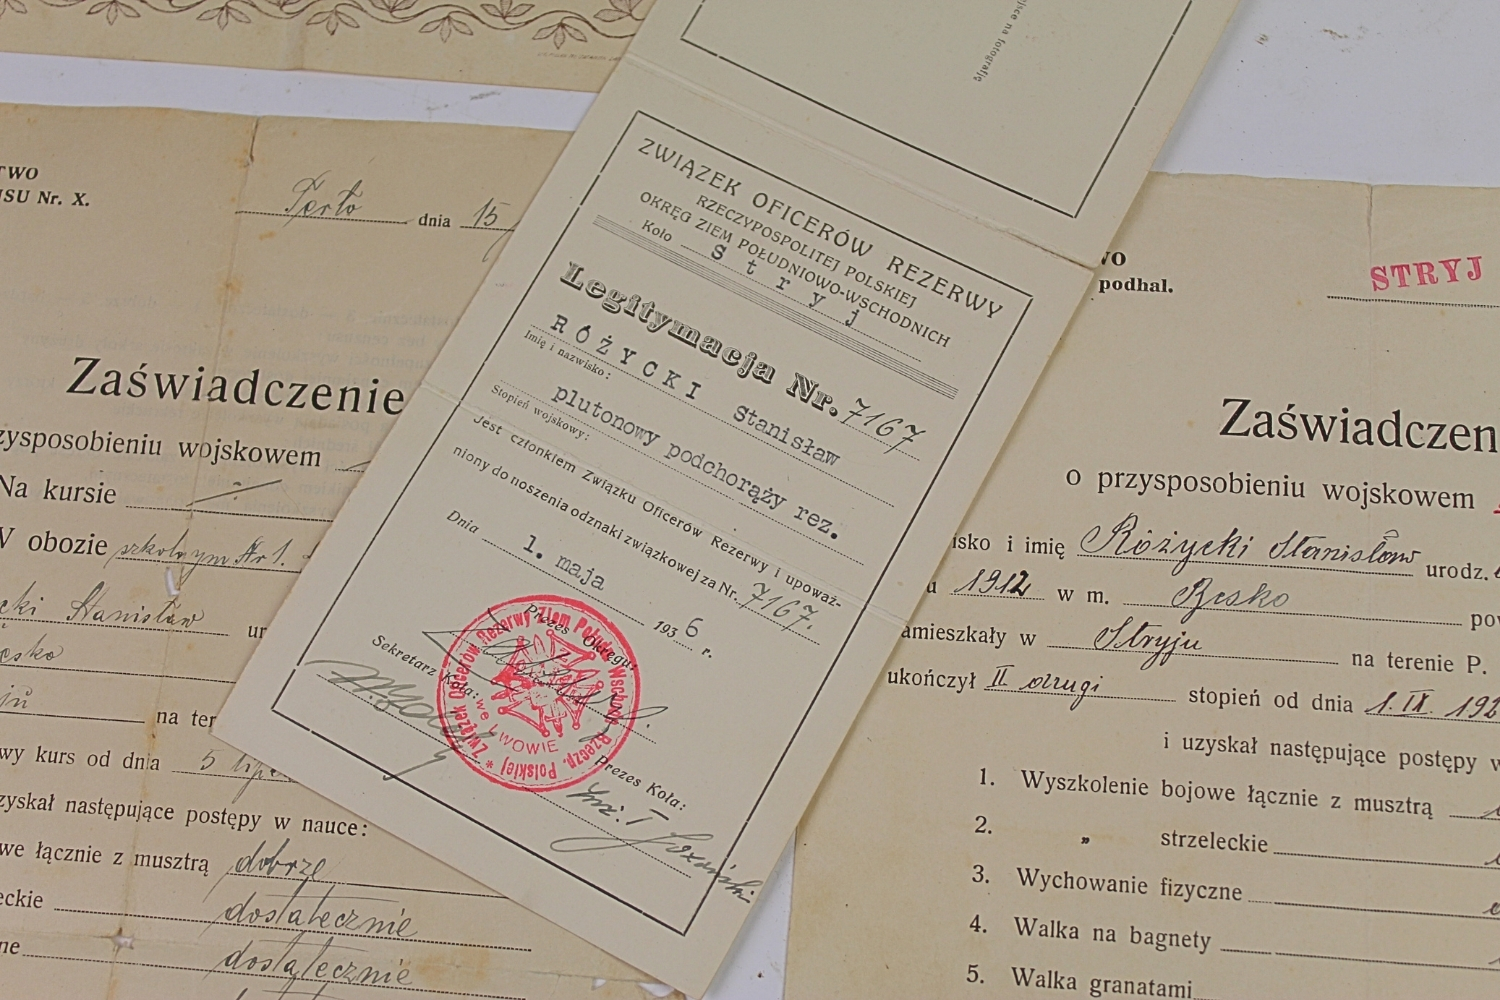 TWO
NSU Nr. X.
dnia 15
Zaświadczenie
zysposobieniu wojskowem
Na kursie
V obozie szkolnym Nr 1.
cki Stanisław ur
esko
ju na ter
wy kurs od dnia 5 lipc
zyskał następujące postępy w nauce:
we łącznie z musztrą dobrze
eckie dostatecznie
ne dostatecznie
jsce na fotografję
ZWIĄZEK OFICERÓW REZERWY
RZECZYPOSPOLITEJ POLSKIEJ
OKRĘG ZIEM POŁUDNIOWO-WSCHODNICH
Koło Stryj
Legitymacja Nr. 7167
RÓŻYCKI Stanisław
Imię i nazwisko:
plutonowy podchorąży rez.
Stopień wojskowy:
Jest członkiem Związku Oficerów Rezerwy i upoważ-
niony do noszenia odznaki związkowej za Nr. 7167.
Dnia 1. maja 1936 r.
Prezes Okręgu:
Sekretarz Koła:
Związek Oficerów Rezerwy Ziem Połud. Wschod. Rzeczp. Polskiej *
we LWOWIE
Prezes Koła:
VO
podhal.
STRYJ
Zaświadczen
o przysposobieniu wojskowem
isko i imię Różycki Stanisław urodz.
u 1912 w m. Besko pow
amieszkały w Stryju na terenie P.
ukończył II drugi stopień od dnia 1. IX. 192
i uzyskał następujące postępy w
1. Wyszkolenie bojowe łącznie z musztrą
2. „ strzeleckie
3. Wychowanie fizyczne
4. Walka na bagnety
5. Walka granatami